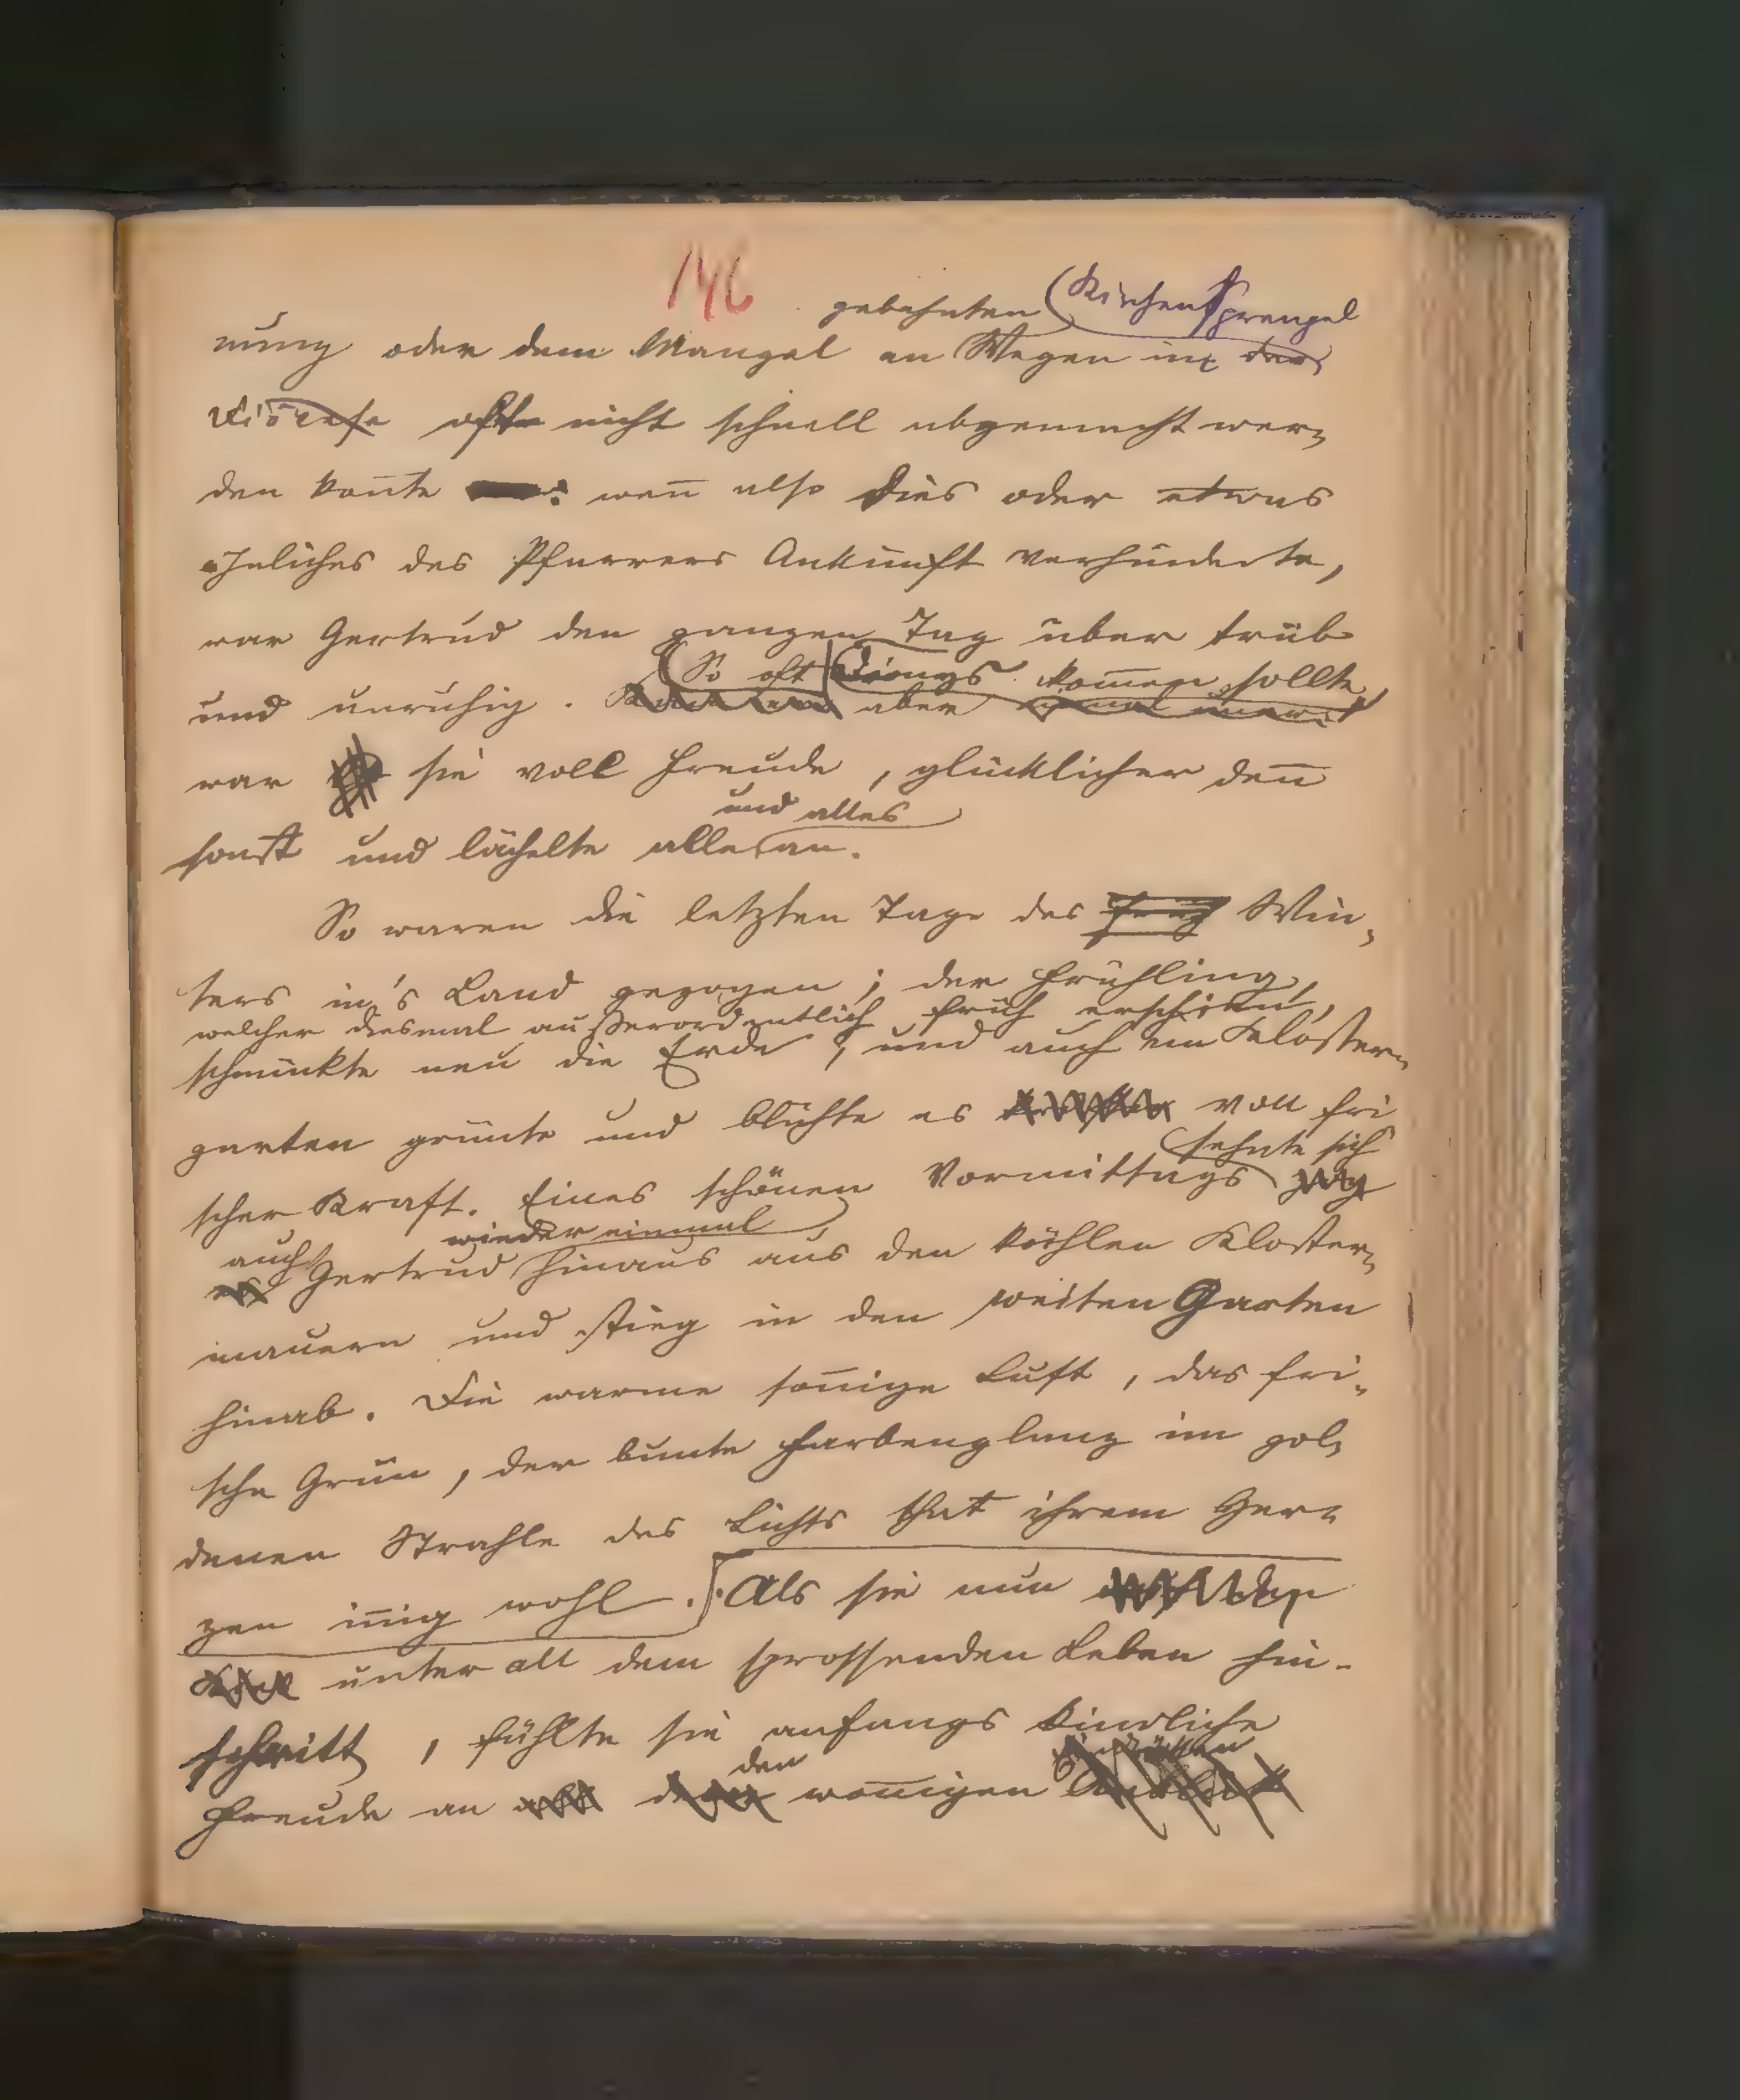 146
gebahnten Kirchensprengel
nung oder dem Mangel an Wegen im der
Diözese oft nicht schnell abgemacht wer-
den konnte wen̄ also dies oder etwas
ähnliches des Pfarrers Ankunft verhinderte,
war Gertrud den ganzen Tag über trüb
So oft Dionys kom̄en sollte,
und unruhig. aber
war sie voll Freude, glücklicher den̄
und alles
sonst und lächelte alle an.
So waren die letzten Tage des Win-
ters in's Land gezogen; der Frühling,
welcher diesmal außerordentlich früh erschien,
schmückte neu die Erde, und auch im Kloster-
garten grünte und blühte es voll fri
sehnte sich
scher Kraft. Eines schönen Vormittags zog
auch wieder einmal
es Gertrud hinaus aus den kühlen Kloster-
mauern und stieg in den weiten Garten
hinab. Die warme son̄ige Luft, das fri-
sche Grün, der bunte Farbenglanz im gol-
denen Strahle des Lichts that ihrem Her-
zen in̄ig wohl. Als sie nun
unter all dem sprossenden Leben hin-
schritt, fühlte sie anfangs kindliche
den
Freude an won̄igen